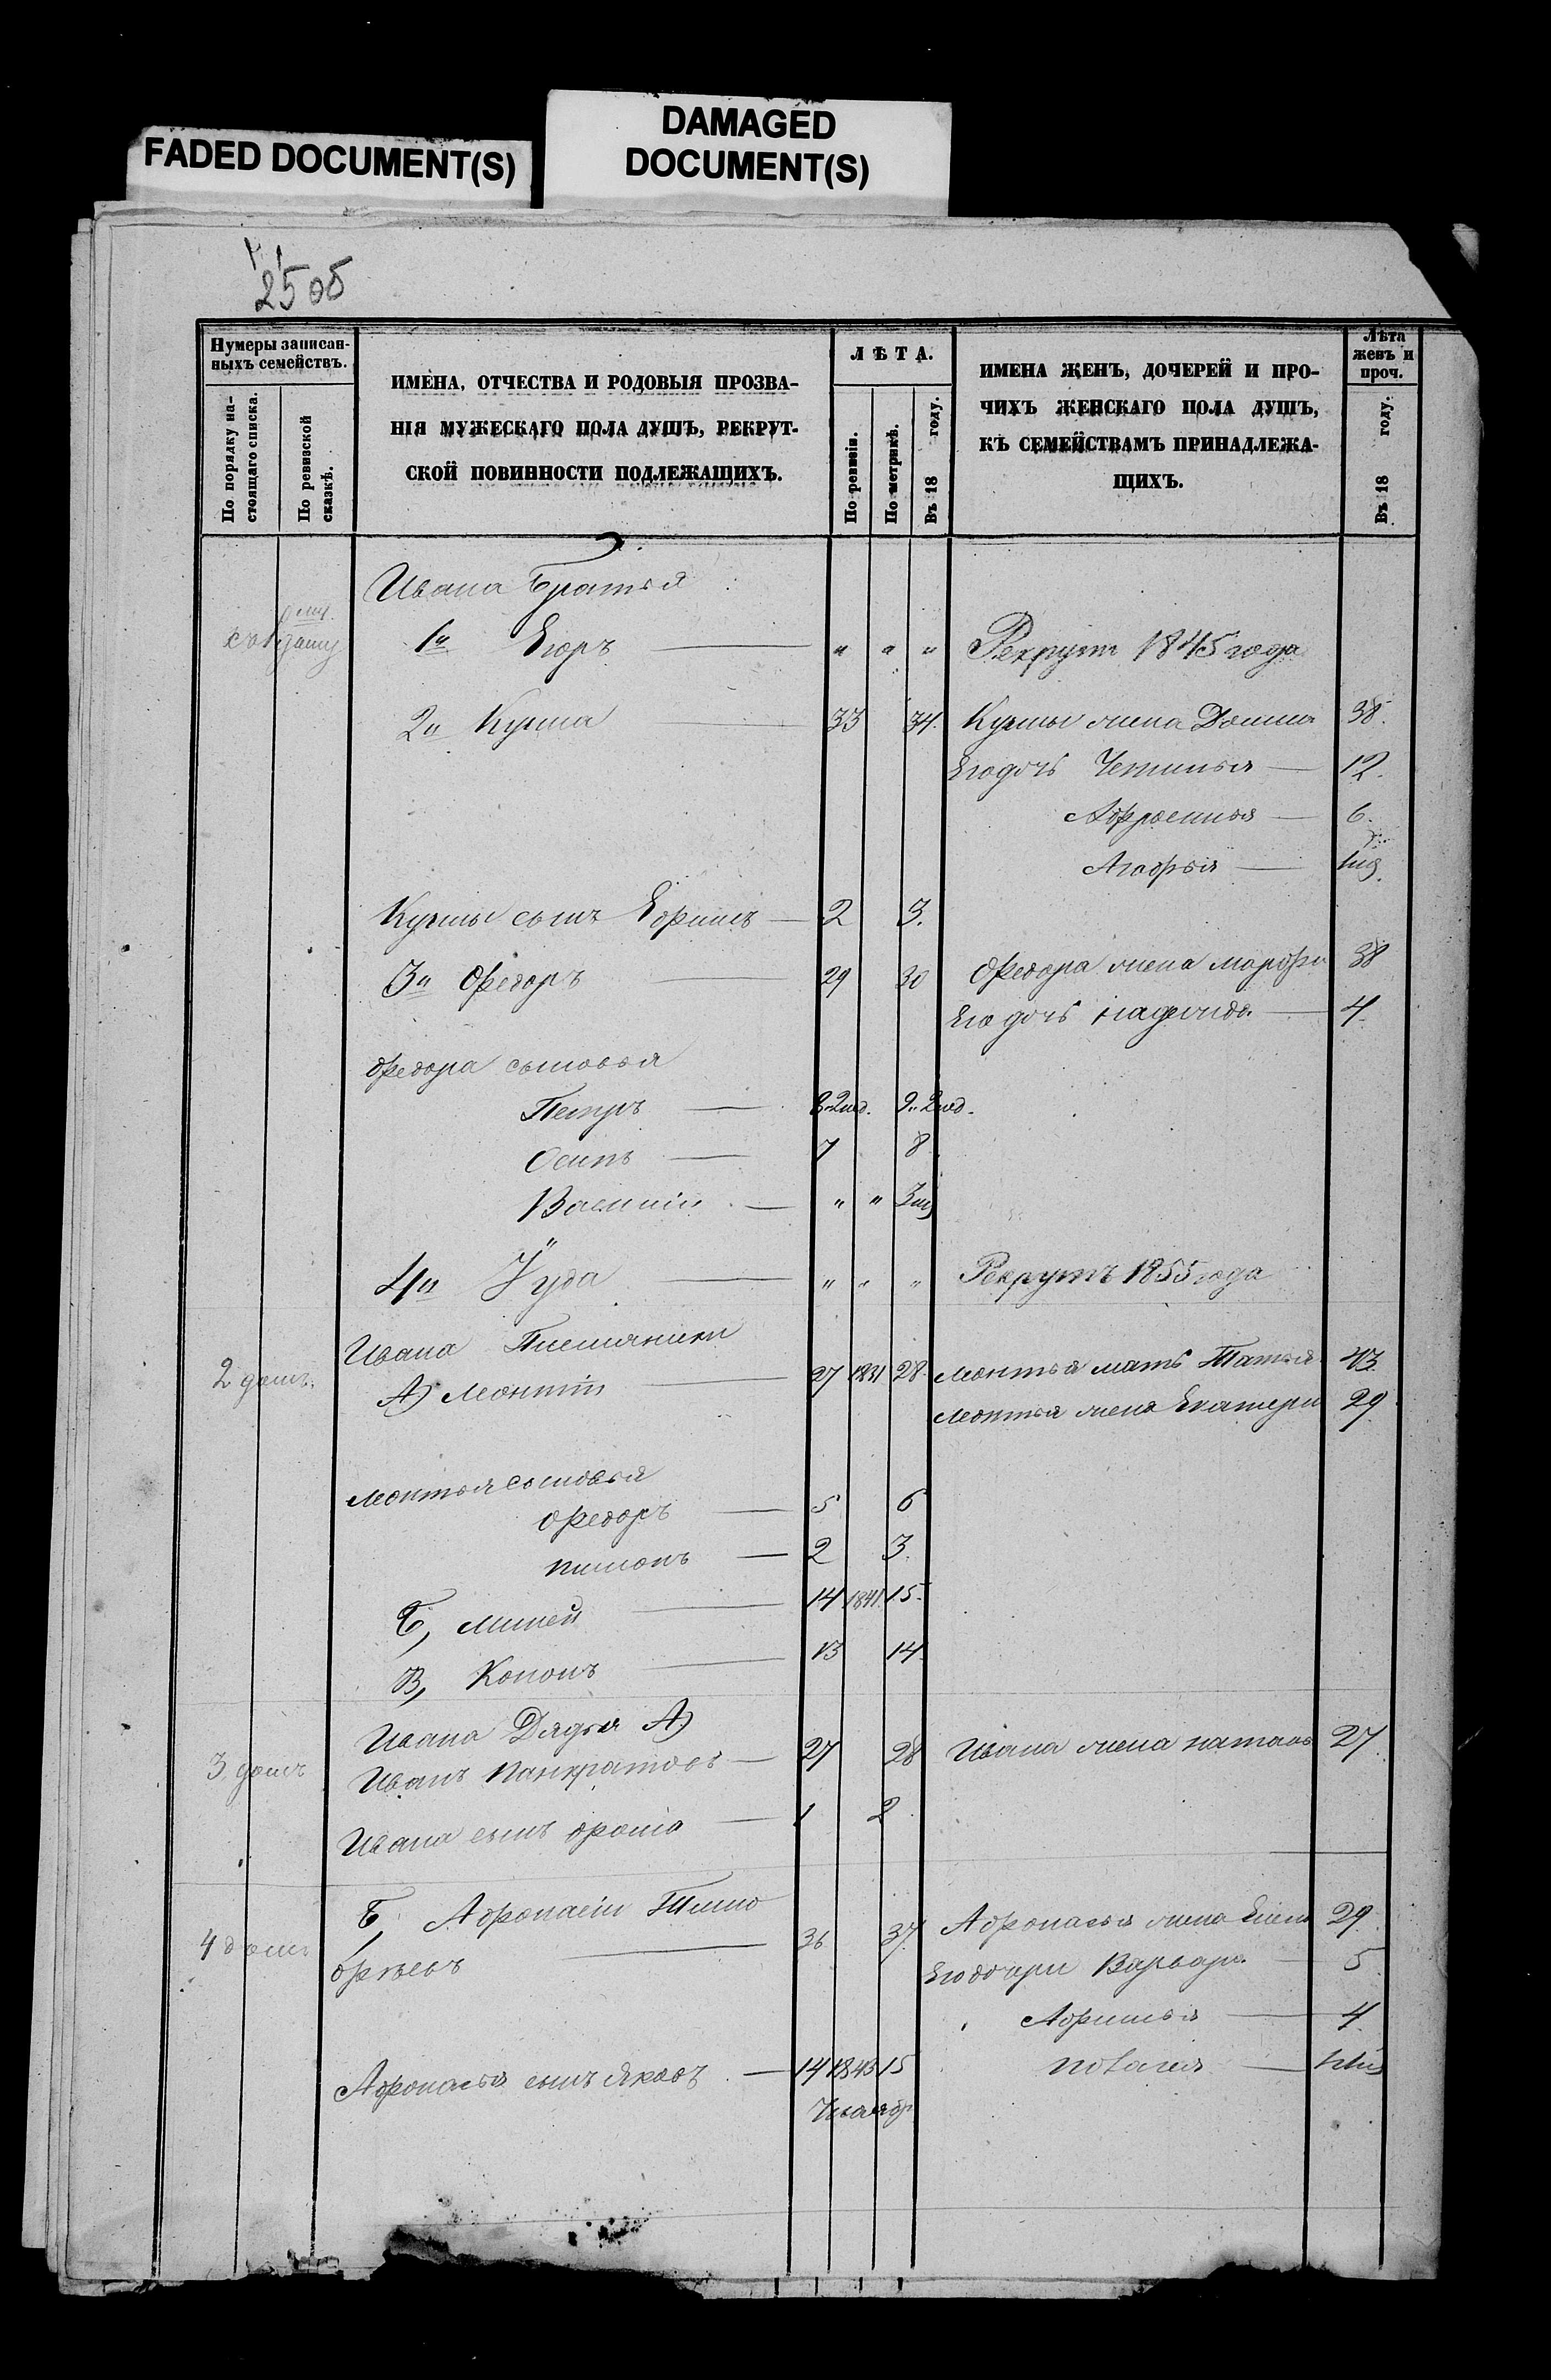 FADED DOCUMENT(S)
DAMAGED
DOCUMENT(S)
2505
Нумеры записан-
ныхъ семействъ.
По порядку на-
стоящаго списка.
По ревизской
сказкѣ.
ИМЕНА, ОТЧЕСТВА И РОДОВЫЯ ПРОЗВА-
НІЯ МУЖЕСКАГО ПОЛА ДУШЪ, РЕКРУТ-
СКОЙ ПОВИННОСТИ ПОДЛЕЖАЩИХЪ.
ЛѢТА.
По ревизіи.
По метрикѣ.
Въ 18 году.
ИМЕНА ЖЕНЪ, ДОЧЕРЕЙ И ПРО-
ЧИХЪ ЖЕНСКАГО ПОЛА ДУШЪ,
КЪ СЕМЕЙСТВАМЪ ПРИНАДЛЕЖА-
ЩИХЪ.
Лѣта
женъ и
проч.
Въ 18 году.
Ивана Братья
1й Егоръ — " " " Рекрутъ 1845 года
2й Кузма — 33 34. Кузмы жена Домна 38.
Его дочь — 12.
Афросинья — 6.
Агафья —
Кузмы сынъ Ефимъ — 2 3.
3й Федоръ — 29 30 Федора жена Марфа 38
Его дочь Надежда — 4.
Федора сыновья
Петръ — 8. 2нед. 9. 2нед.
Осипъ — 7 8
Василій — " " 3
4й Іуда — " " " Рекрутъ 1855 года
Ивана Племяники
2 домъ. А) Леонтій — 27 1831 28. Леонтья мать Татья. 43.
Леонтья жена Екатери 29
Леонтья сыновья
Федоръ — 5 6
Пимонъ — 2 3.
Б, — 14 1841 15.
В, Кононъ — 13 14.
Ивана Дядья А)
3 домъ Иванъ Панкратовъ — 27 28 Ивана жена Наталь 27.
Ивана сынъ Фома — 1 2
4 домъ Б, Афонасій Тимо
фѣевъ — 36 37. Афонасья жена 29.
Его дочери Варвара — 5
Афимья — 4.
Афонасья сынъ Яковъ. — 14 1843 15